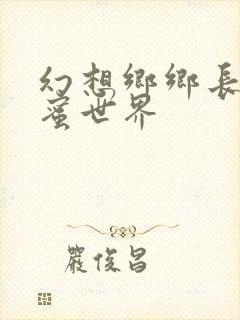 幻想鄉鄉長
蜜世界
嚴俊昌